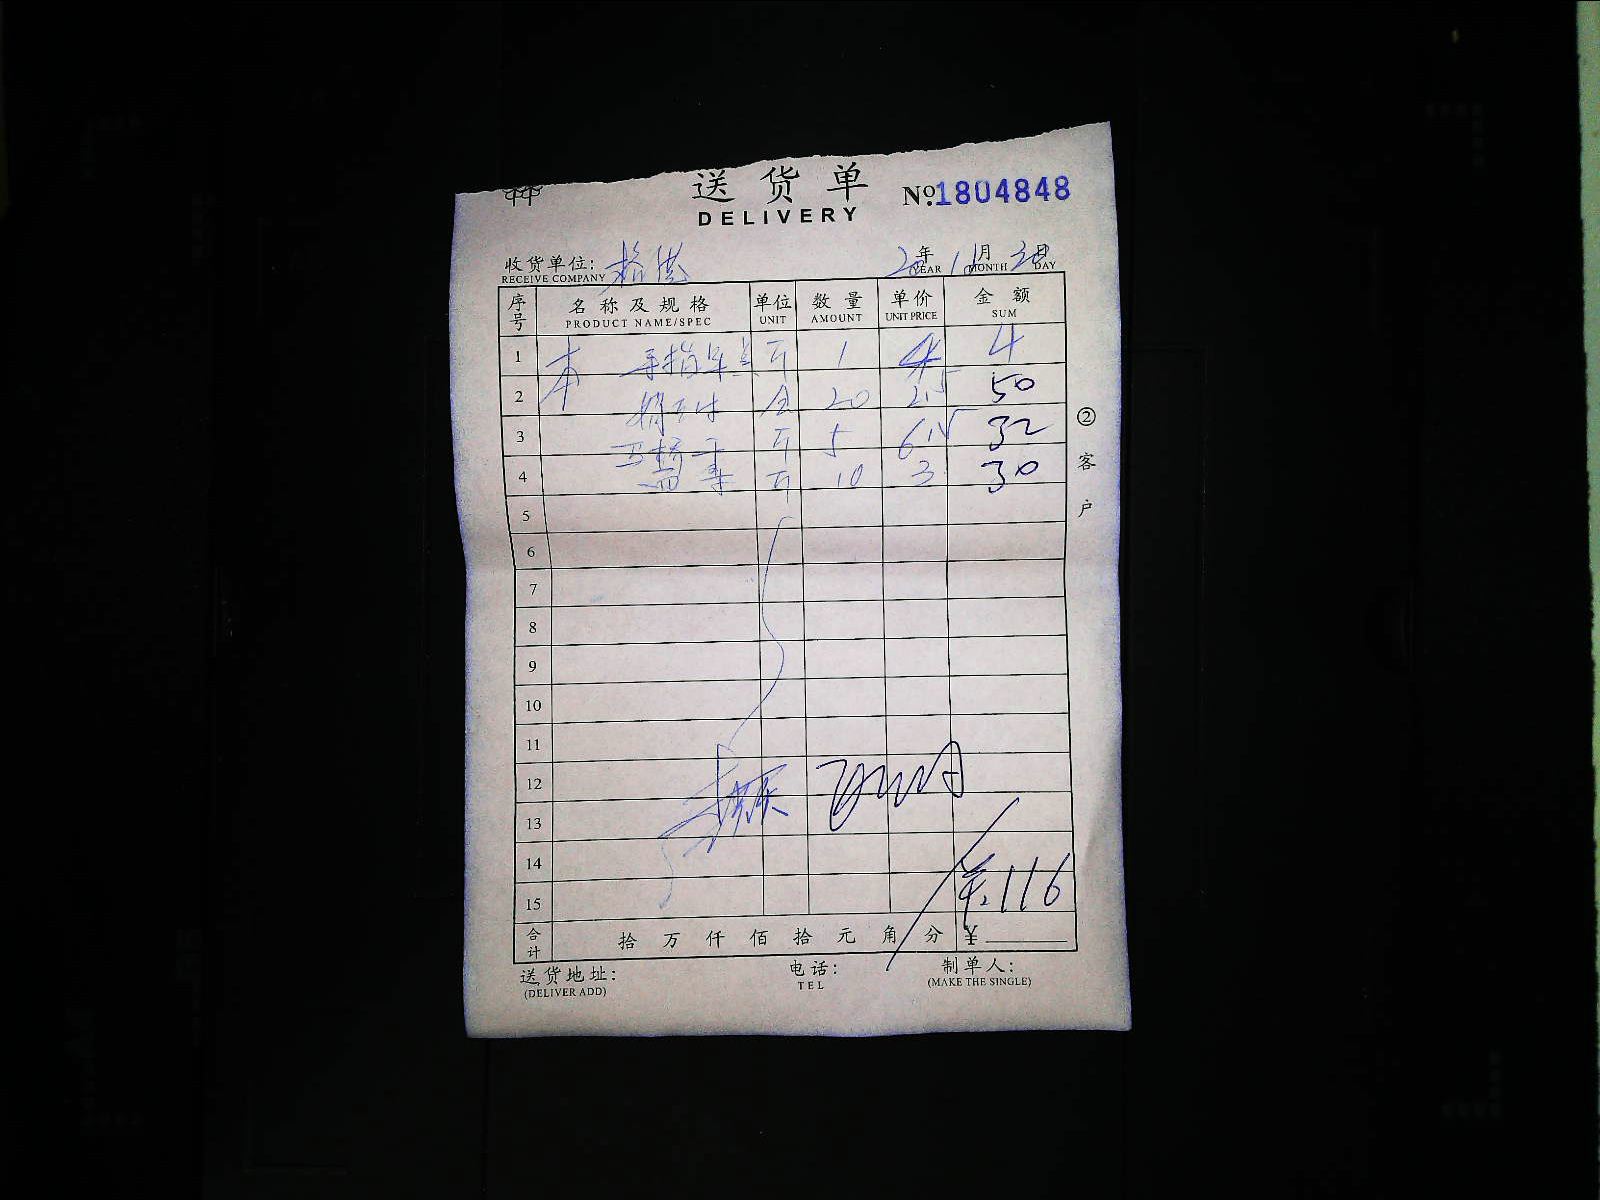 送货单
DELIVERY
№ 1804848
收货单位:
RECEIVE COMPANY
20年 11月 30日
YEAR MONTH DAY
序号 名称及规格 单位 数量 单价 金额
PRODUCT NAME/SPEC UNIT AMOUNT UNIT PRICE SUM
1 本 手指 斤 1 4 4
2 20 2.5 50
3 斤 5 6.5 32
4 斤 10 3 30
5
6
7
8
9
10
11
12
13
14
15
116
合计 拾 万 仟 佰 拾 元 角 分 ¥
②客户
送货地址: 电话: 制单人:
(DELIVER ADD) TEL (MAKE THE SINGLE)